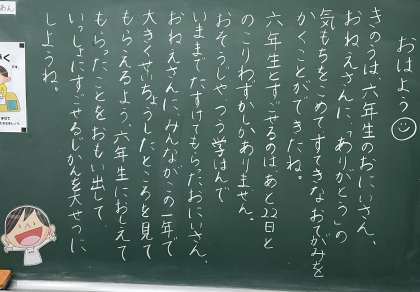 おはよう
きのうは、六年生のおにいさん、
おねえさんに、「ありがとう」の
気もちをこめてすてきなおてがみを
かくことができたね。
六年生とすごせるのはあと22日と
のこりわずかしかありません。
おそうじやつう学はんで
いままでたすけてもらったおにいさん、
おねえさんに、みんながこの一年で
大きくせいちょうしたところを見て
もらえるよう、六年生におしえて
もらったことをおもい出して、
いっしょにすごせるじかんを大せつに
しようね。